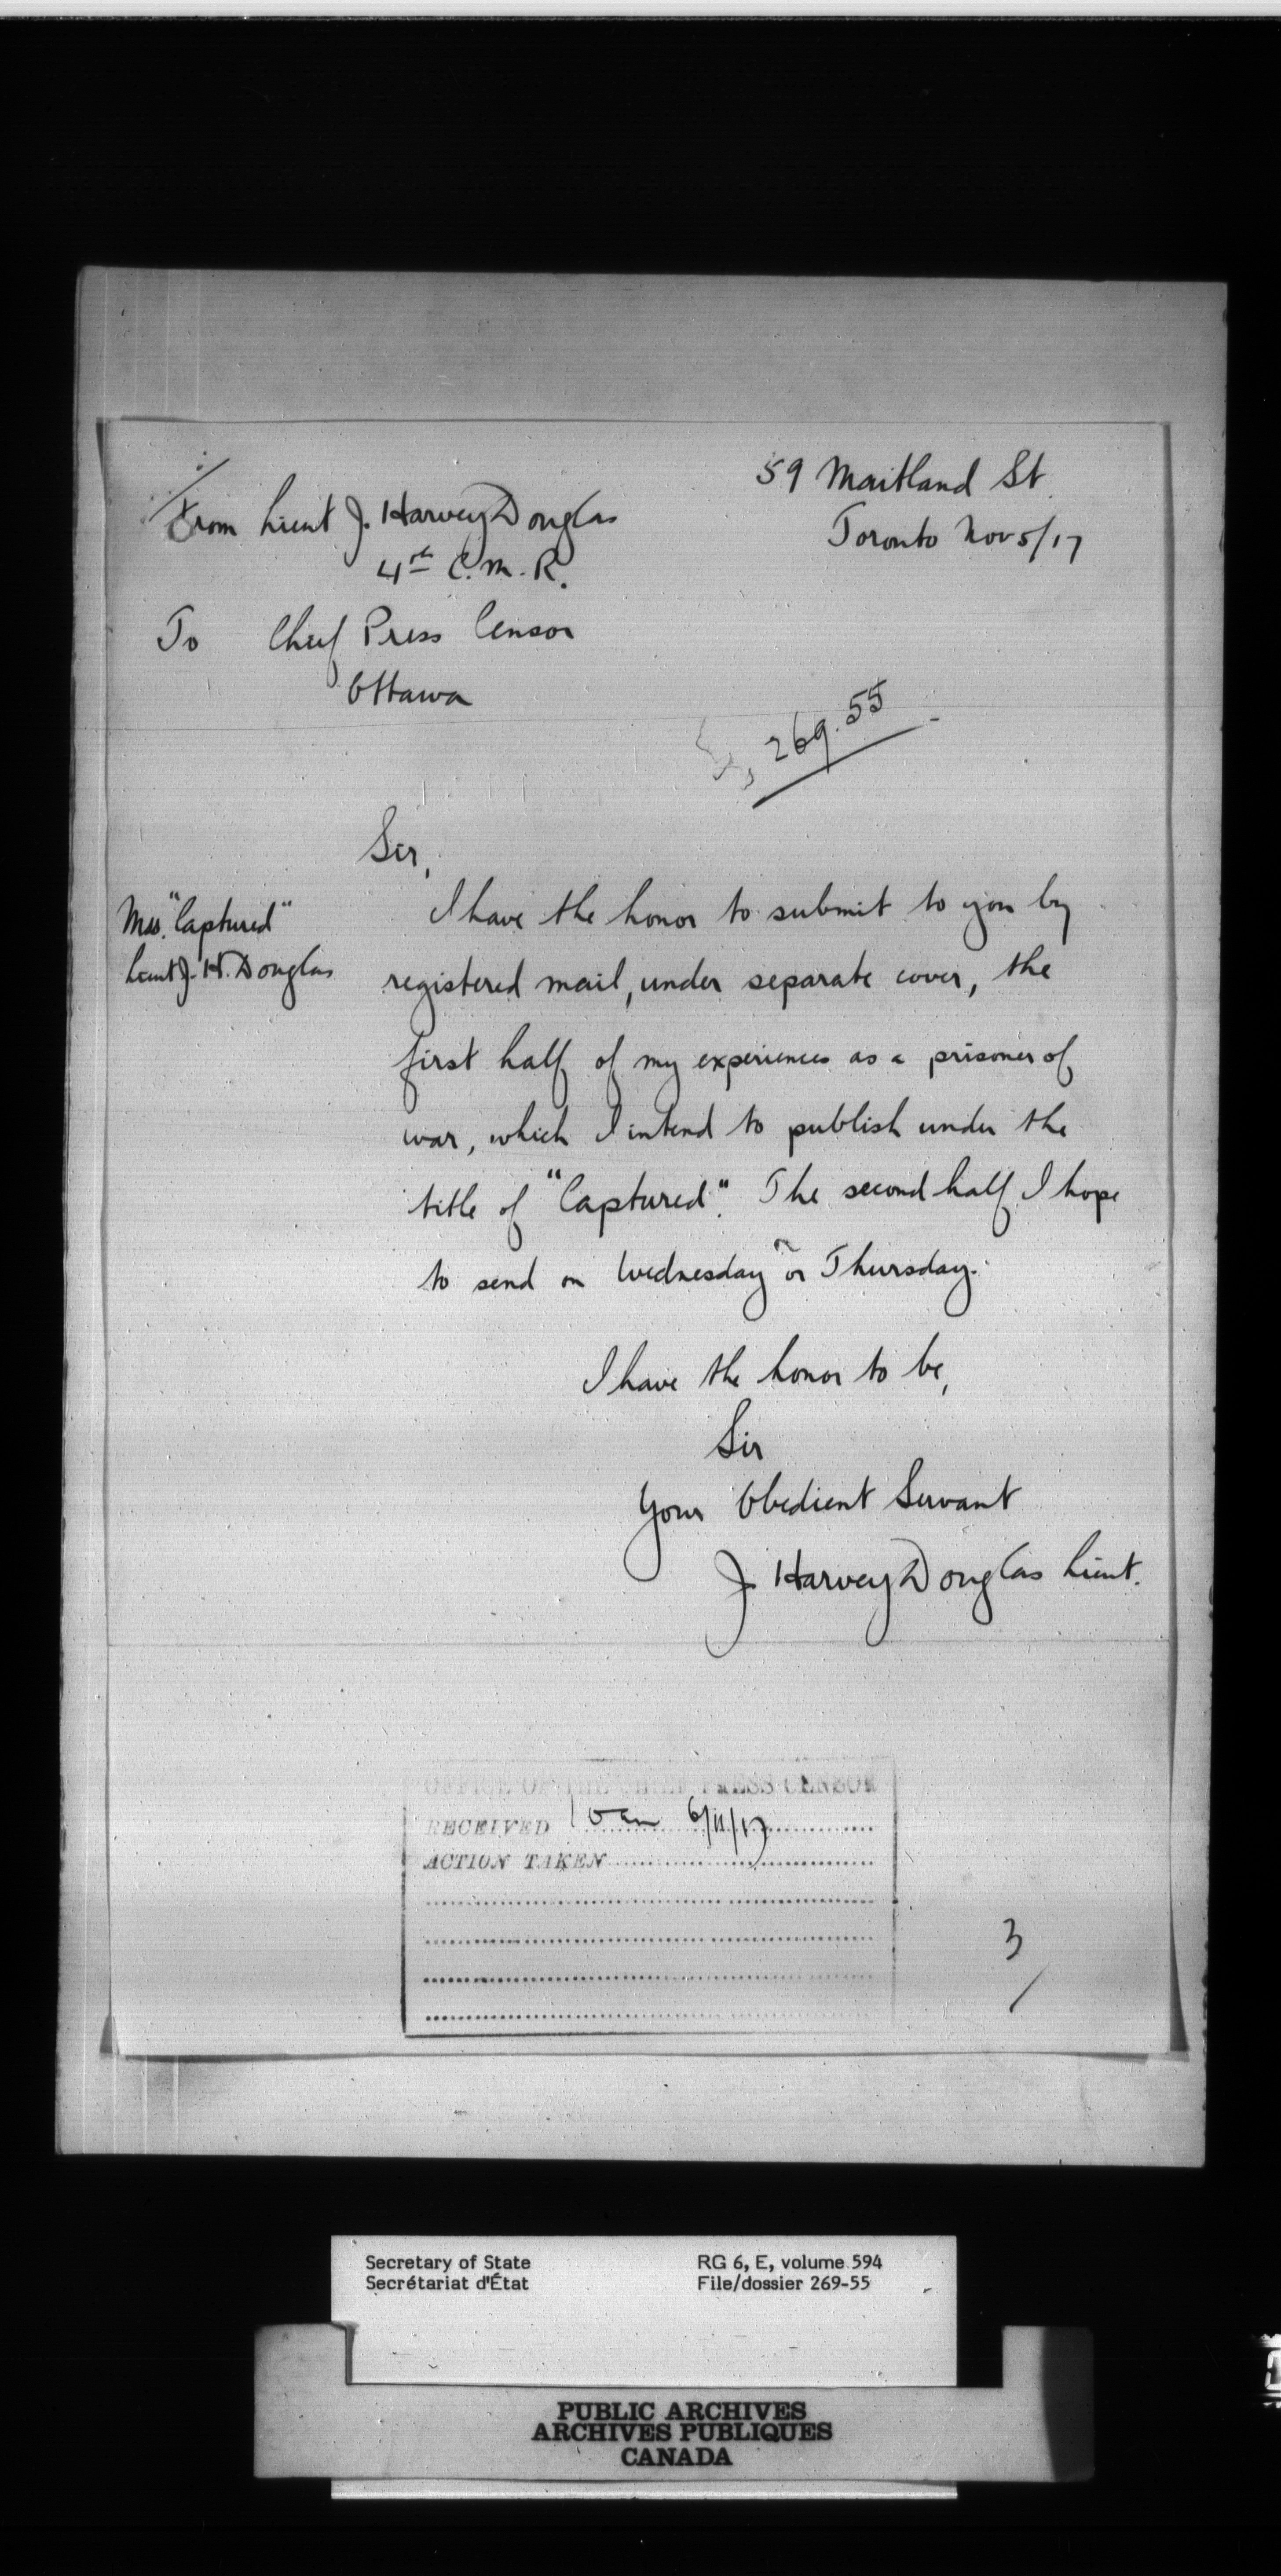 59 Maitland St
Toronto Nov 5/17
From Lieut J. Harvey Douglas
4th C.M.R.
To Chief Press Censor
Ottawa
269.55
Sir,
Mss. "Captured"
Lieut J. H. Douglas
I have the honor to submit to you by
registered mail, under separate cover, the
first half of my experiences as a prisoner of
war, which I intend to publish under the
title of "Captured". The second half I hope
to send on Wednesday or Thursday.
I have the honor to be,
Sir
Your Obedient Servant
J. Harvey Douglas Lieut.
OFFICE OF THE CHIEF PRESS CENSOR
RECEIVED 10 am 6/11/17
ACTION TAKEN
3
Secretary of State
Secrétariat d'État
RG 6, E, volume 594
File/dossier 269-55
PUBLIC ARCHIVES
ARCHIVES PUBLIQUES
CANADA